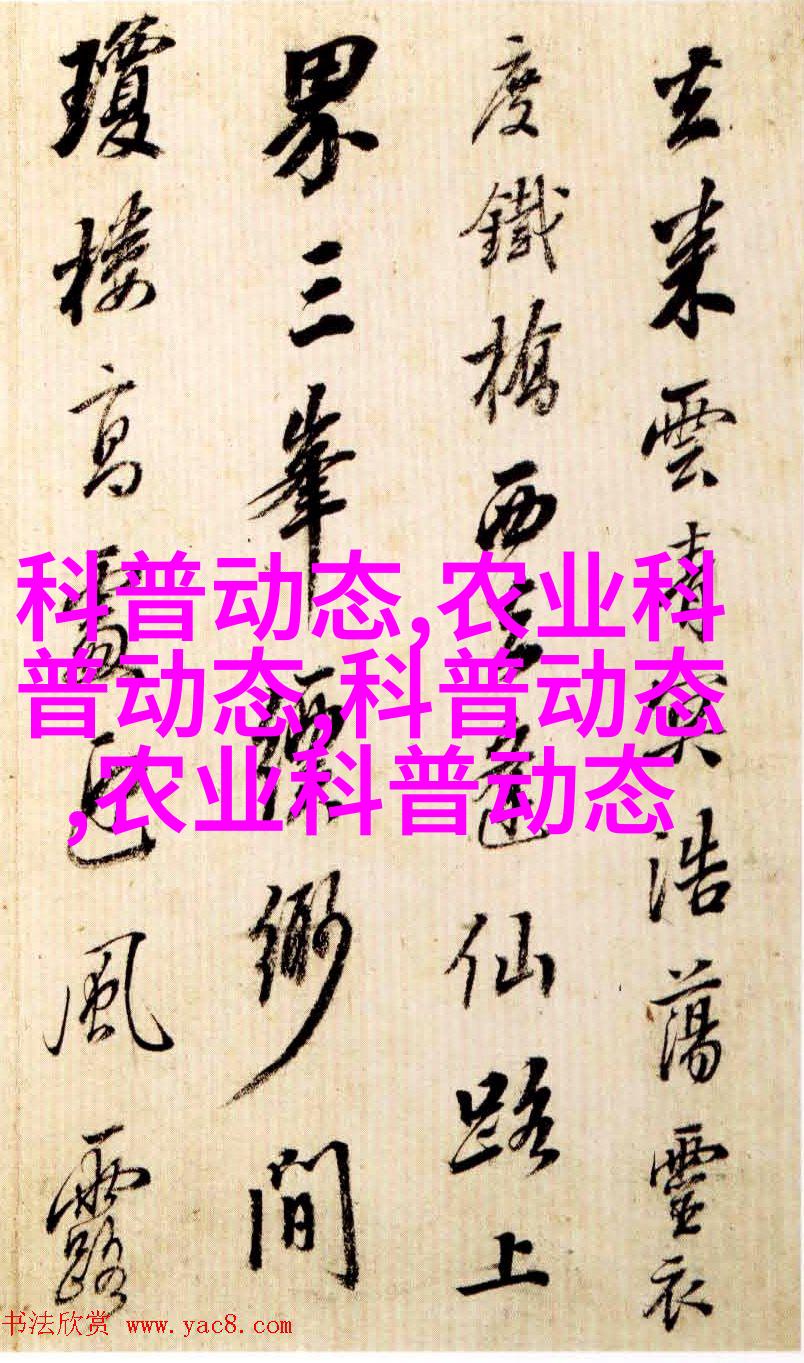 去来雲青冥浩蕩靈衣
度鐵橋西仙路上
界三峯縹緲間
瓊樓高處足風露
科普动态,农业科
普动态,科普动态
,农业科普动态
书法欣赏 www.yac8.com